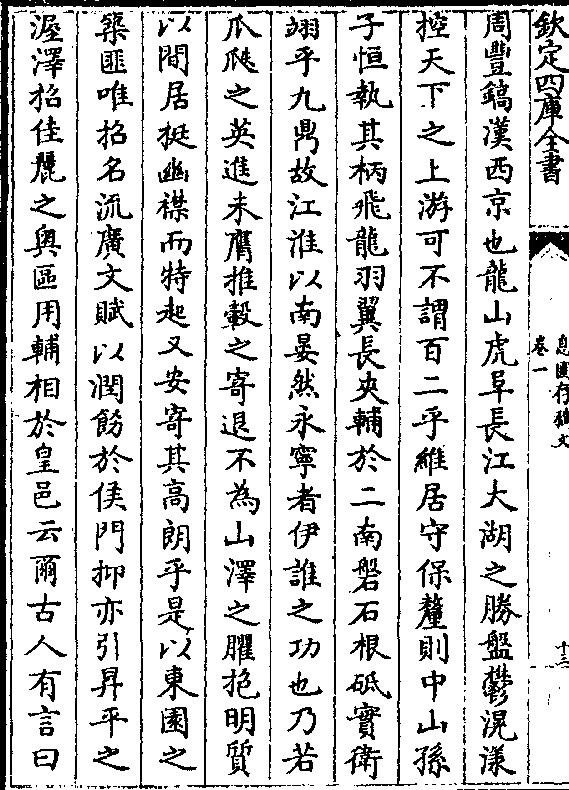 欽定四庫全書
息園存稿文
卷一
十三
周豐鎬漢西京也龍山虎阜長江大湖之勝盤鬱滉漾
控天下之上游可不謂百二乎維居守保釐則中山孫
子恒執其柄飛龍羽翼長夾輔於二南磐石根砥實衛
翊乎九鼎故江淮以南晏然永寧者伊誰之功也乃若
爪爮之英進未膺推轂之寄退不為山澤之臞抱明質
以閒居挺幽襟而特起又安寄其高朗乎是以東園之
築匪唯招名流廣文賦以潤飾於侯門抑亦引昇平之
渥澤招佳麗之奧區用輔相於皇邑云爾古人有言曰